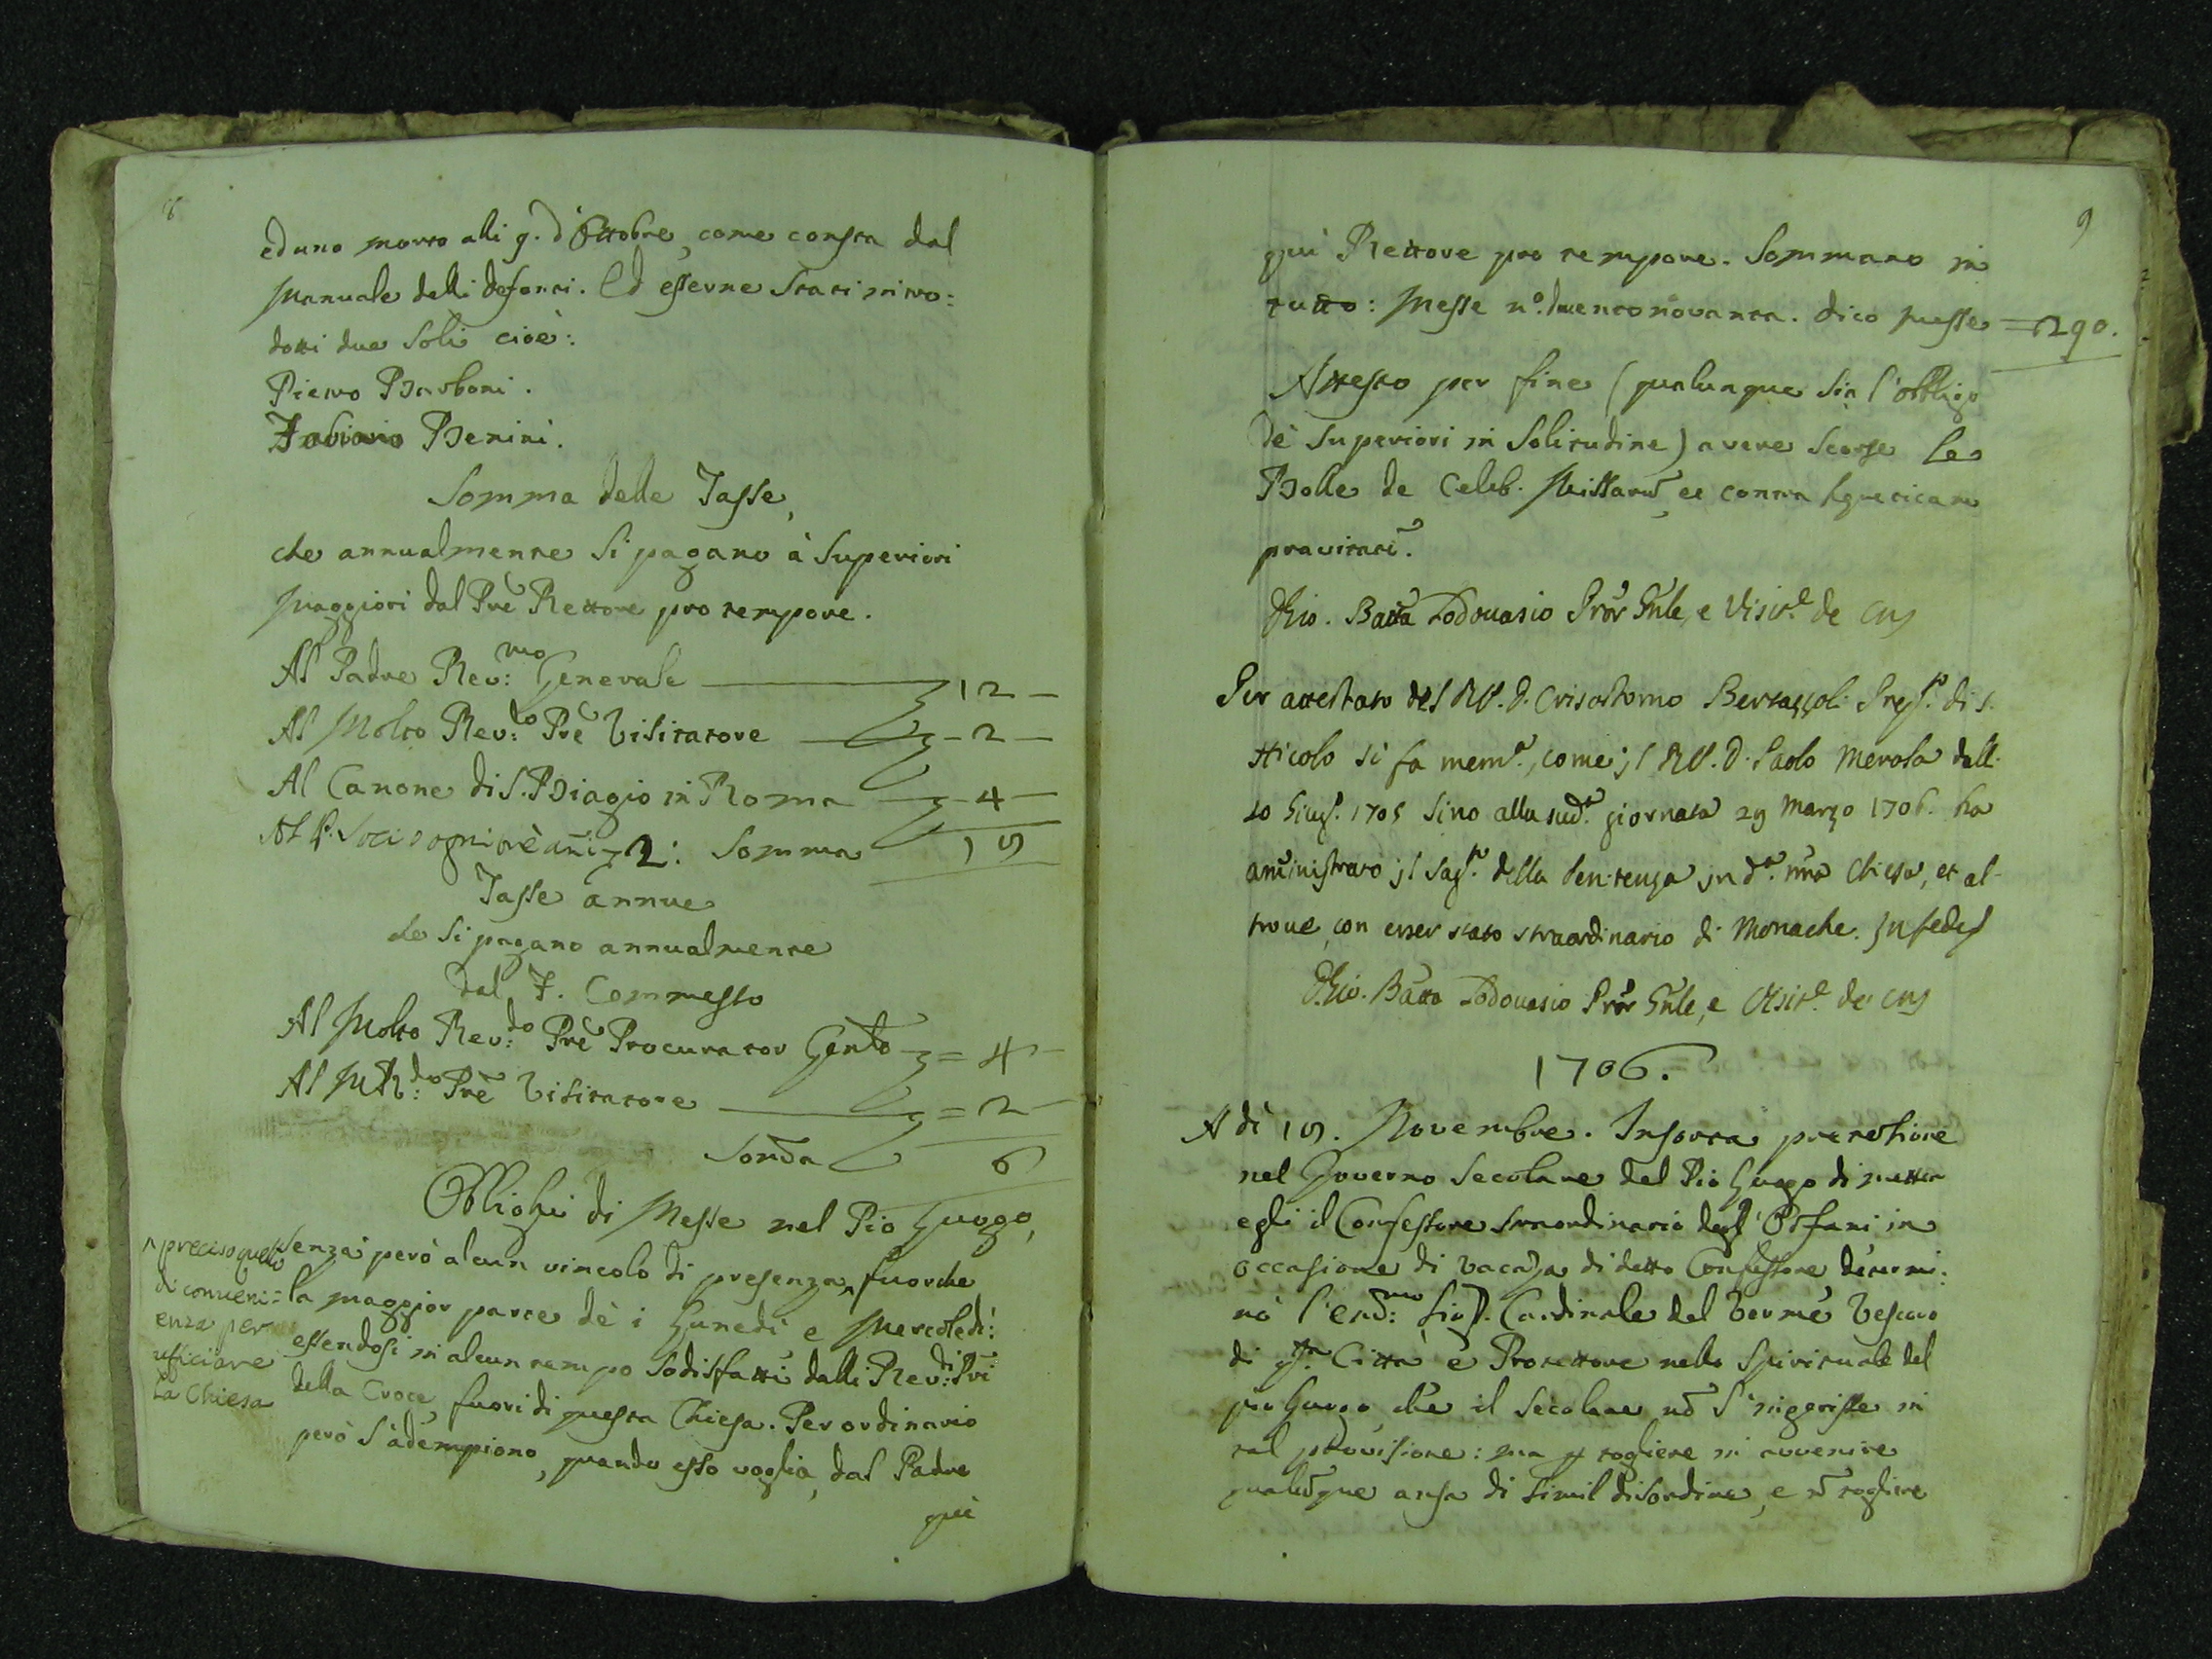 8
ed uno morto alli 9. d'Ottobre, come consta dal
Manuale delli defonti. Ed esserne stati intro=
dotti due soli cioè:
Pietro Barboni.
Fabiano Benini.
Somma delle Tasse,
che annualmente si pagano à Superiori
Maggiori dal Prē Rettore pro tempore.
Al Padre Rev:mo Generale 12 —
Al Molto Rev:do Prē Visitatore — 2 —
Al Canone di S. Biagio in Roma — 4 —
Al P. Socio ogni tre añi 2: Somma 19
Tasse annue
che si pagano annualmente
dal F. Commesso
Al Molto Rev:do Prē Procurator Genle = 4
Al M.R:do Prē Visitatore = 2
Somā 6
Oblighi di Messe nel Pio Luogo,
senza però alcun vincolo di presenza, ^ fuorche
^ preciso quello
di conveni=
enza per
uficiare
la Chiesa
la maggior parte dè i Lunedì e Mercoledì:
essendosi in alcun tempo sodisfatti dalli Rev:di Pri
della Croce, fuori di questa Chiesa. Per ordinario
però s'adempiono, quando esso voglia, dal Padre
qui
9
qui Rettore pro tempore. Sommano in
tutto: Messe n.º duentonovanta. dico Messe = 290.
Attesto per fine (qualunque sia l'obbligo
dè Superiori in Solitudine) avere scorse le
Bolle de Celeb. Missarū, et contra hereticam
pravitatē.
D. Gio. Batta Lodovasio Prōr Gñle, e Visit.e de CRS
Per attestato del RP. D. Crisostomo Bertazzoli Prep.to di S.
Nicolo si fa mem.a, come il RP. D. Paolo Merola dall.
10 Giug.o 1705 sino alla sud.a giornata 29 Marzo 1706. ha
aministrato il Sag.to della Penitenza in d.a nrā Chiesa, et al-
trove, con esser stato straordinario di Monache. In fede
D. Gio. Batta Lodovasio Prōr Gñle, e Visit.e de CRS
1706.
A dì 19. Novembre. Insorta pretensione
nel Governo Secolare del Pio Luogo di metter
egli il Confessore straordinario degl' Orfani in
occasione di vacāza di detto Confessore determi:
nò l'Em:mo Sig. Cardinale dal Verme Vescovo
di q.ta Città e Protettore nello Spirituale del
pio Luogo, che il Secolare nō s'ingerisse in
tal provisione: ma p togliere in avvenire
qualūque ansa di simil disordine, e nō togliere